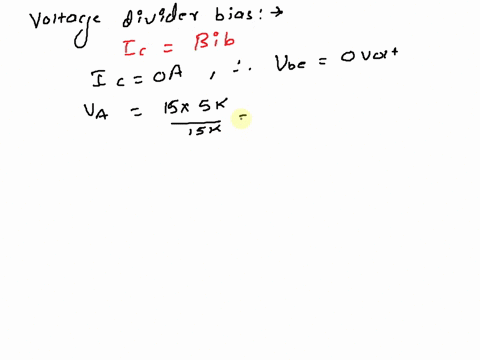 Voltage divider bias:→
Ic = Bib
Ic = 0A , ∴ Vbe = 0 Volt
VA = 15 x 5K / 15K =